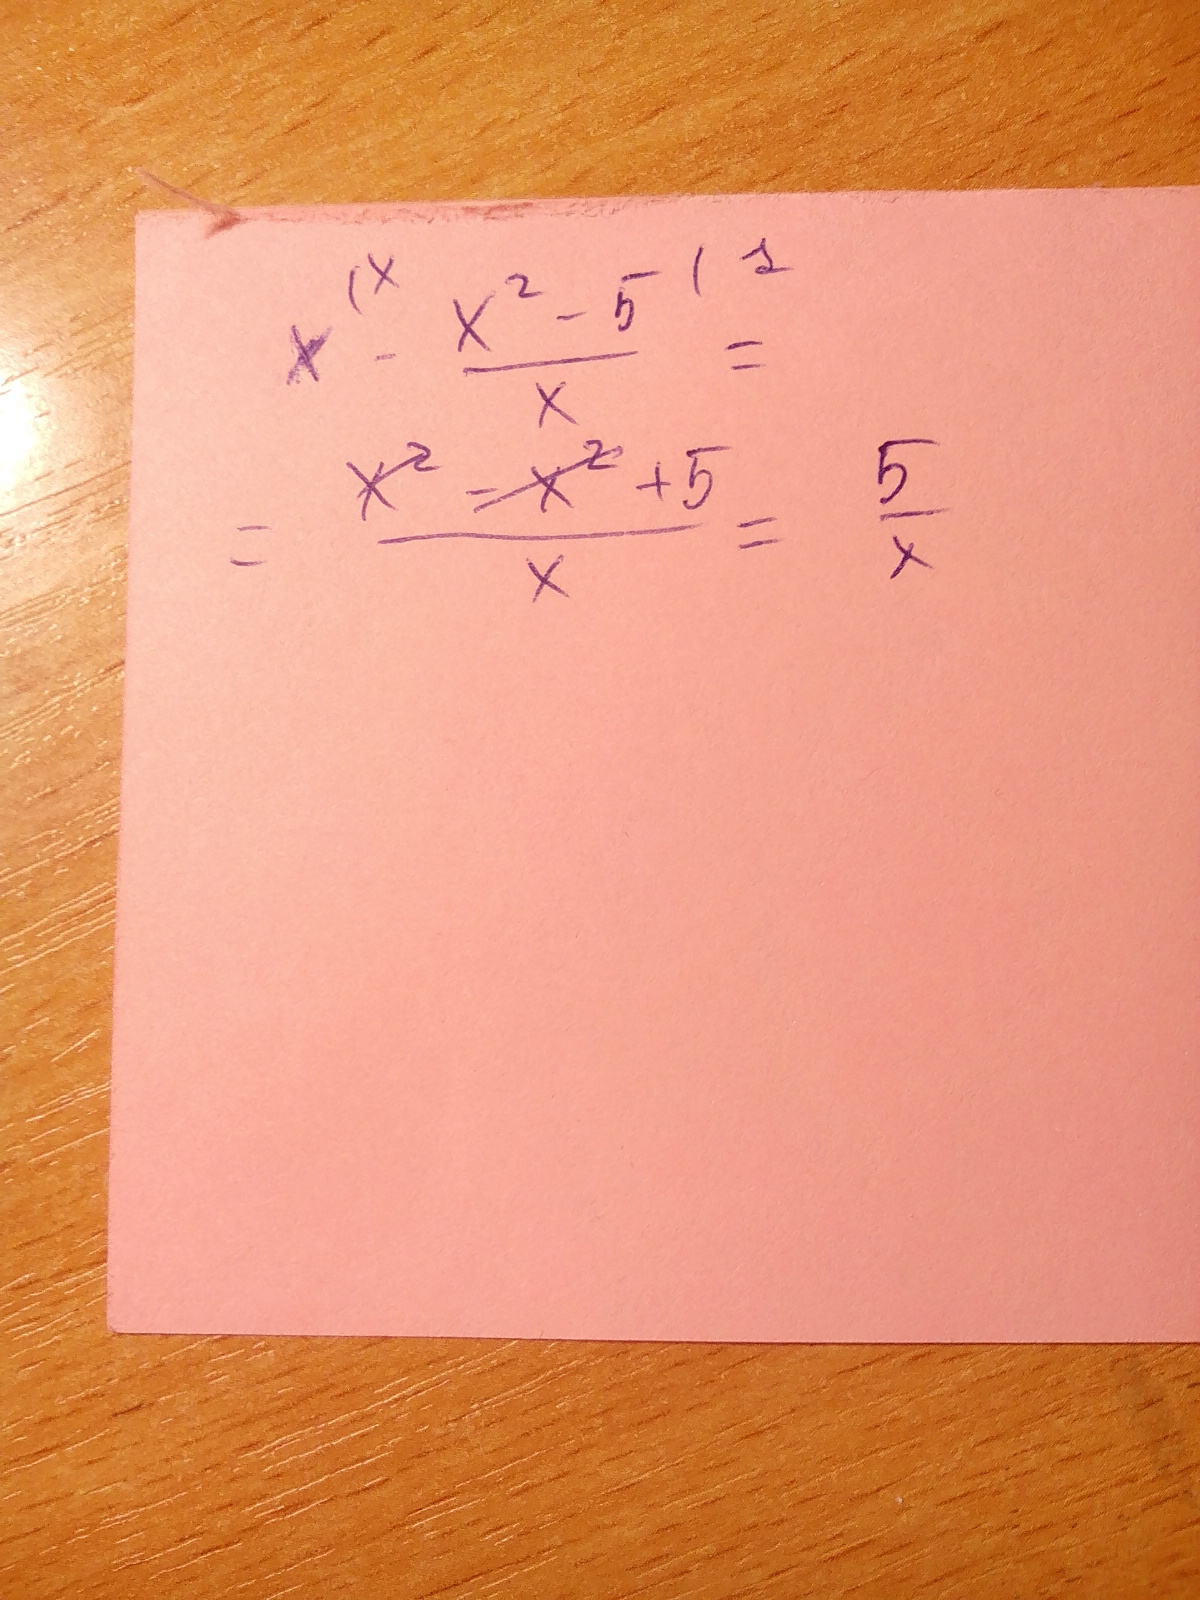 x^(x - (x² - 5)/x ^(1 =
= (x² - x² + 5)/x = 5/x